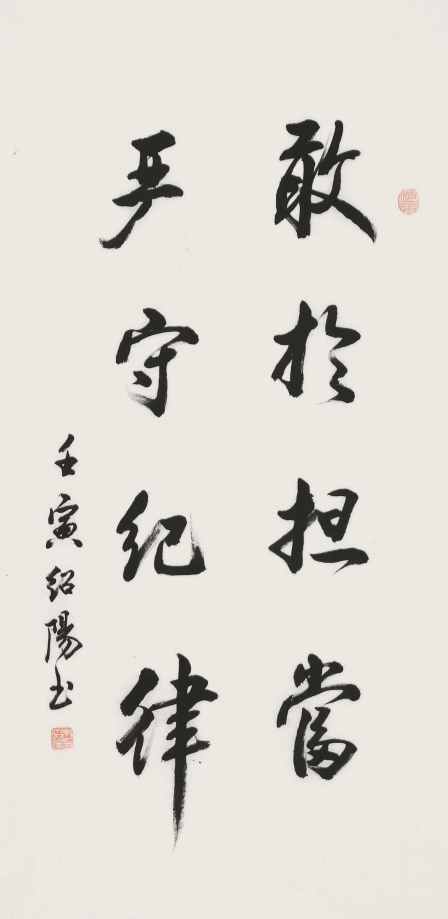 敢於担當
严守纪律
壬寅绍陽书